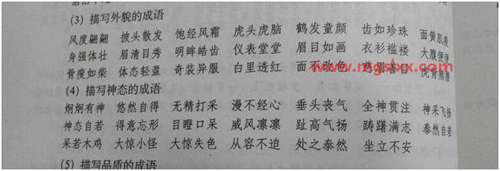 (3) 描写外貌的成语
风度翩翩 披头散发 饱经风霜 虎头虎脑 鹤发童颜 齿如珍珠 面黄肌瘦
身强体壮 眉清目秀 明眸皓齿 仪表堂堂 眉目如画 衣衫褴褛 大腹便便
骨瘦如柴 体态轻盈 奇装异服 白里透红 面不改色
www.mgsbxx.com
(4) 描写神态的成语
炯炯有神 悠然自得 无精打采 漫不经心 垂头丧气 全神贯注 神采飞扬
神态自若 得意忘形 目瞪口呆 威风凛凛 趾高气扬 踌躇满志 泰然自若
呆若木鸡 大惊小怪 大惊失色 从容不迫 处之泰然 坐立不安
(5) 描写品质的成语